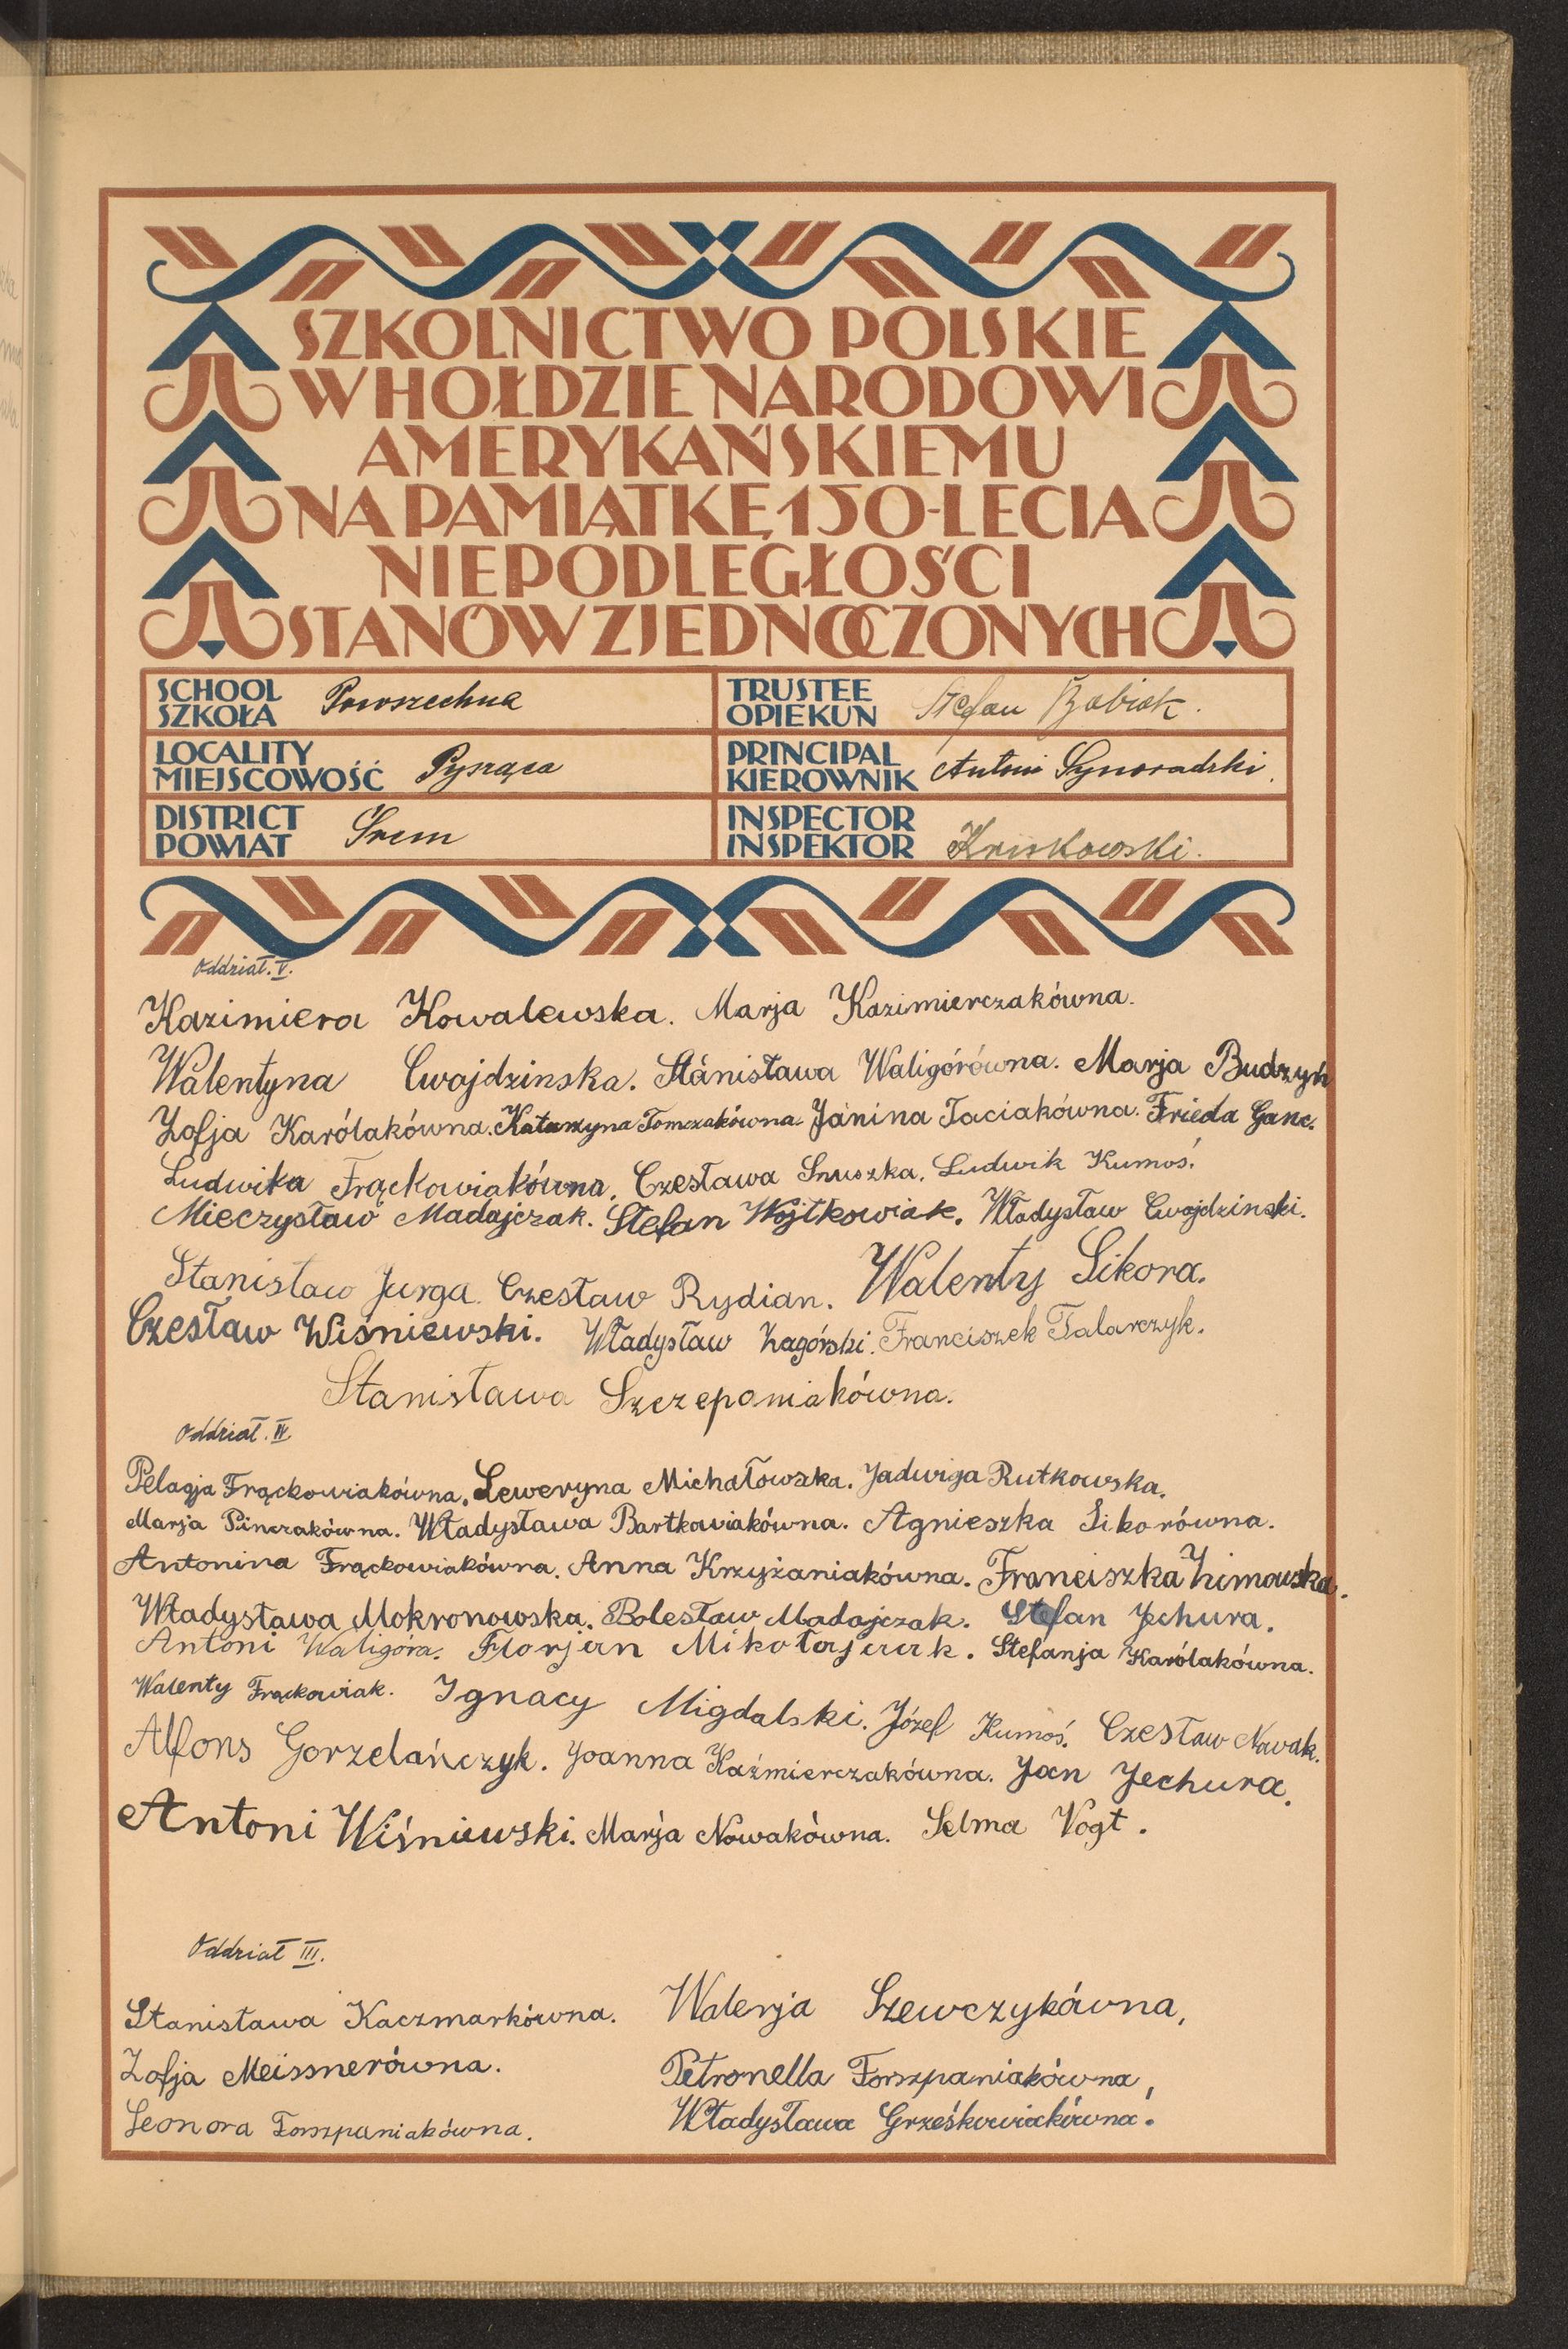 SZKOLNICTWO POLSKIE
W HOŁDZIE NARODOWI
AMERYKAŃSKIEMU
NA PAMIĄTKĘ 150-LECIA
NIEPODLEGŁOŚCI
STANÓW ZJEDNOCZONYCH
SCHOOL
SZKOŁA Powszechna
TRUSTEE
OPIEKUN Stefan Babiak.
LOCALITY
MIEJSCOWOŚĆ Pysząca
PRINCIPAL
KIEROWNIK Antoni Synoradzki.
DISTRICT
POWIAT Śrem
INSPECTOR
INSPEKTOR
Oddział. V.
Kazimiera Kowalewska. Marja Kazimierczakówna.
Walentyna Cwojdzinska. Stanisława Waligórówna. Marja Budzyń
Zofja Karólakówna. Katarzyna Tomczakówna. Janina Taciakówna. Frieda Ganc.
Ludwika Frąckowiakówna. Czesława Snuszka. Ludwik Kumoś.
Mieczysław Madajczak. Stefan Wojtkowiak. Władysław Cwojdzinski.
Stanisław Jurga. Czesław Rydian. Walenty Sikora.
Czesław Wiśniewski. Władysław Zagórski. Franciszek Talarczyk.
Stanisława Szczepaniakówna.
Oddział. IV
Pelagja Frąckowiakówna. Seweryna Michałowska. Jadwiga Rutkowska.
Marja Pinczakówna. Władysława Bartkowiakówna. Agnieszka Sikorówna.
Antonina Frąckowiakówna. Anna Krzyżaniakówna. Franciszka Zimowska.
Władysława Mokronowska. Bolesław Madajczak. Stefan Jechura.
Antoni Waligóra. Florjan Mikołajczak. Stefanja Karólakówna.
Walenty Frąckowiak. Ignacy Migdalski. Józef Kumoś. Czesław Nowak.
Alfons Gorzelańczyk. Joanna Kaźmierczakówna. Jan Jechura.
Antoni Wiśniewski. Marja Nowakówna. Selma Vogt.
Oddział III.
Stanisława Kaczmarkówna. Walerja Szewczykówna,
Zofja Meissnerówna. Petronella Forszpaniakówna,
Leonora Forszpaniakówna. Władysława Grześkowiakówna.